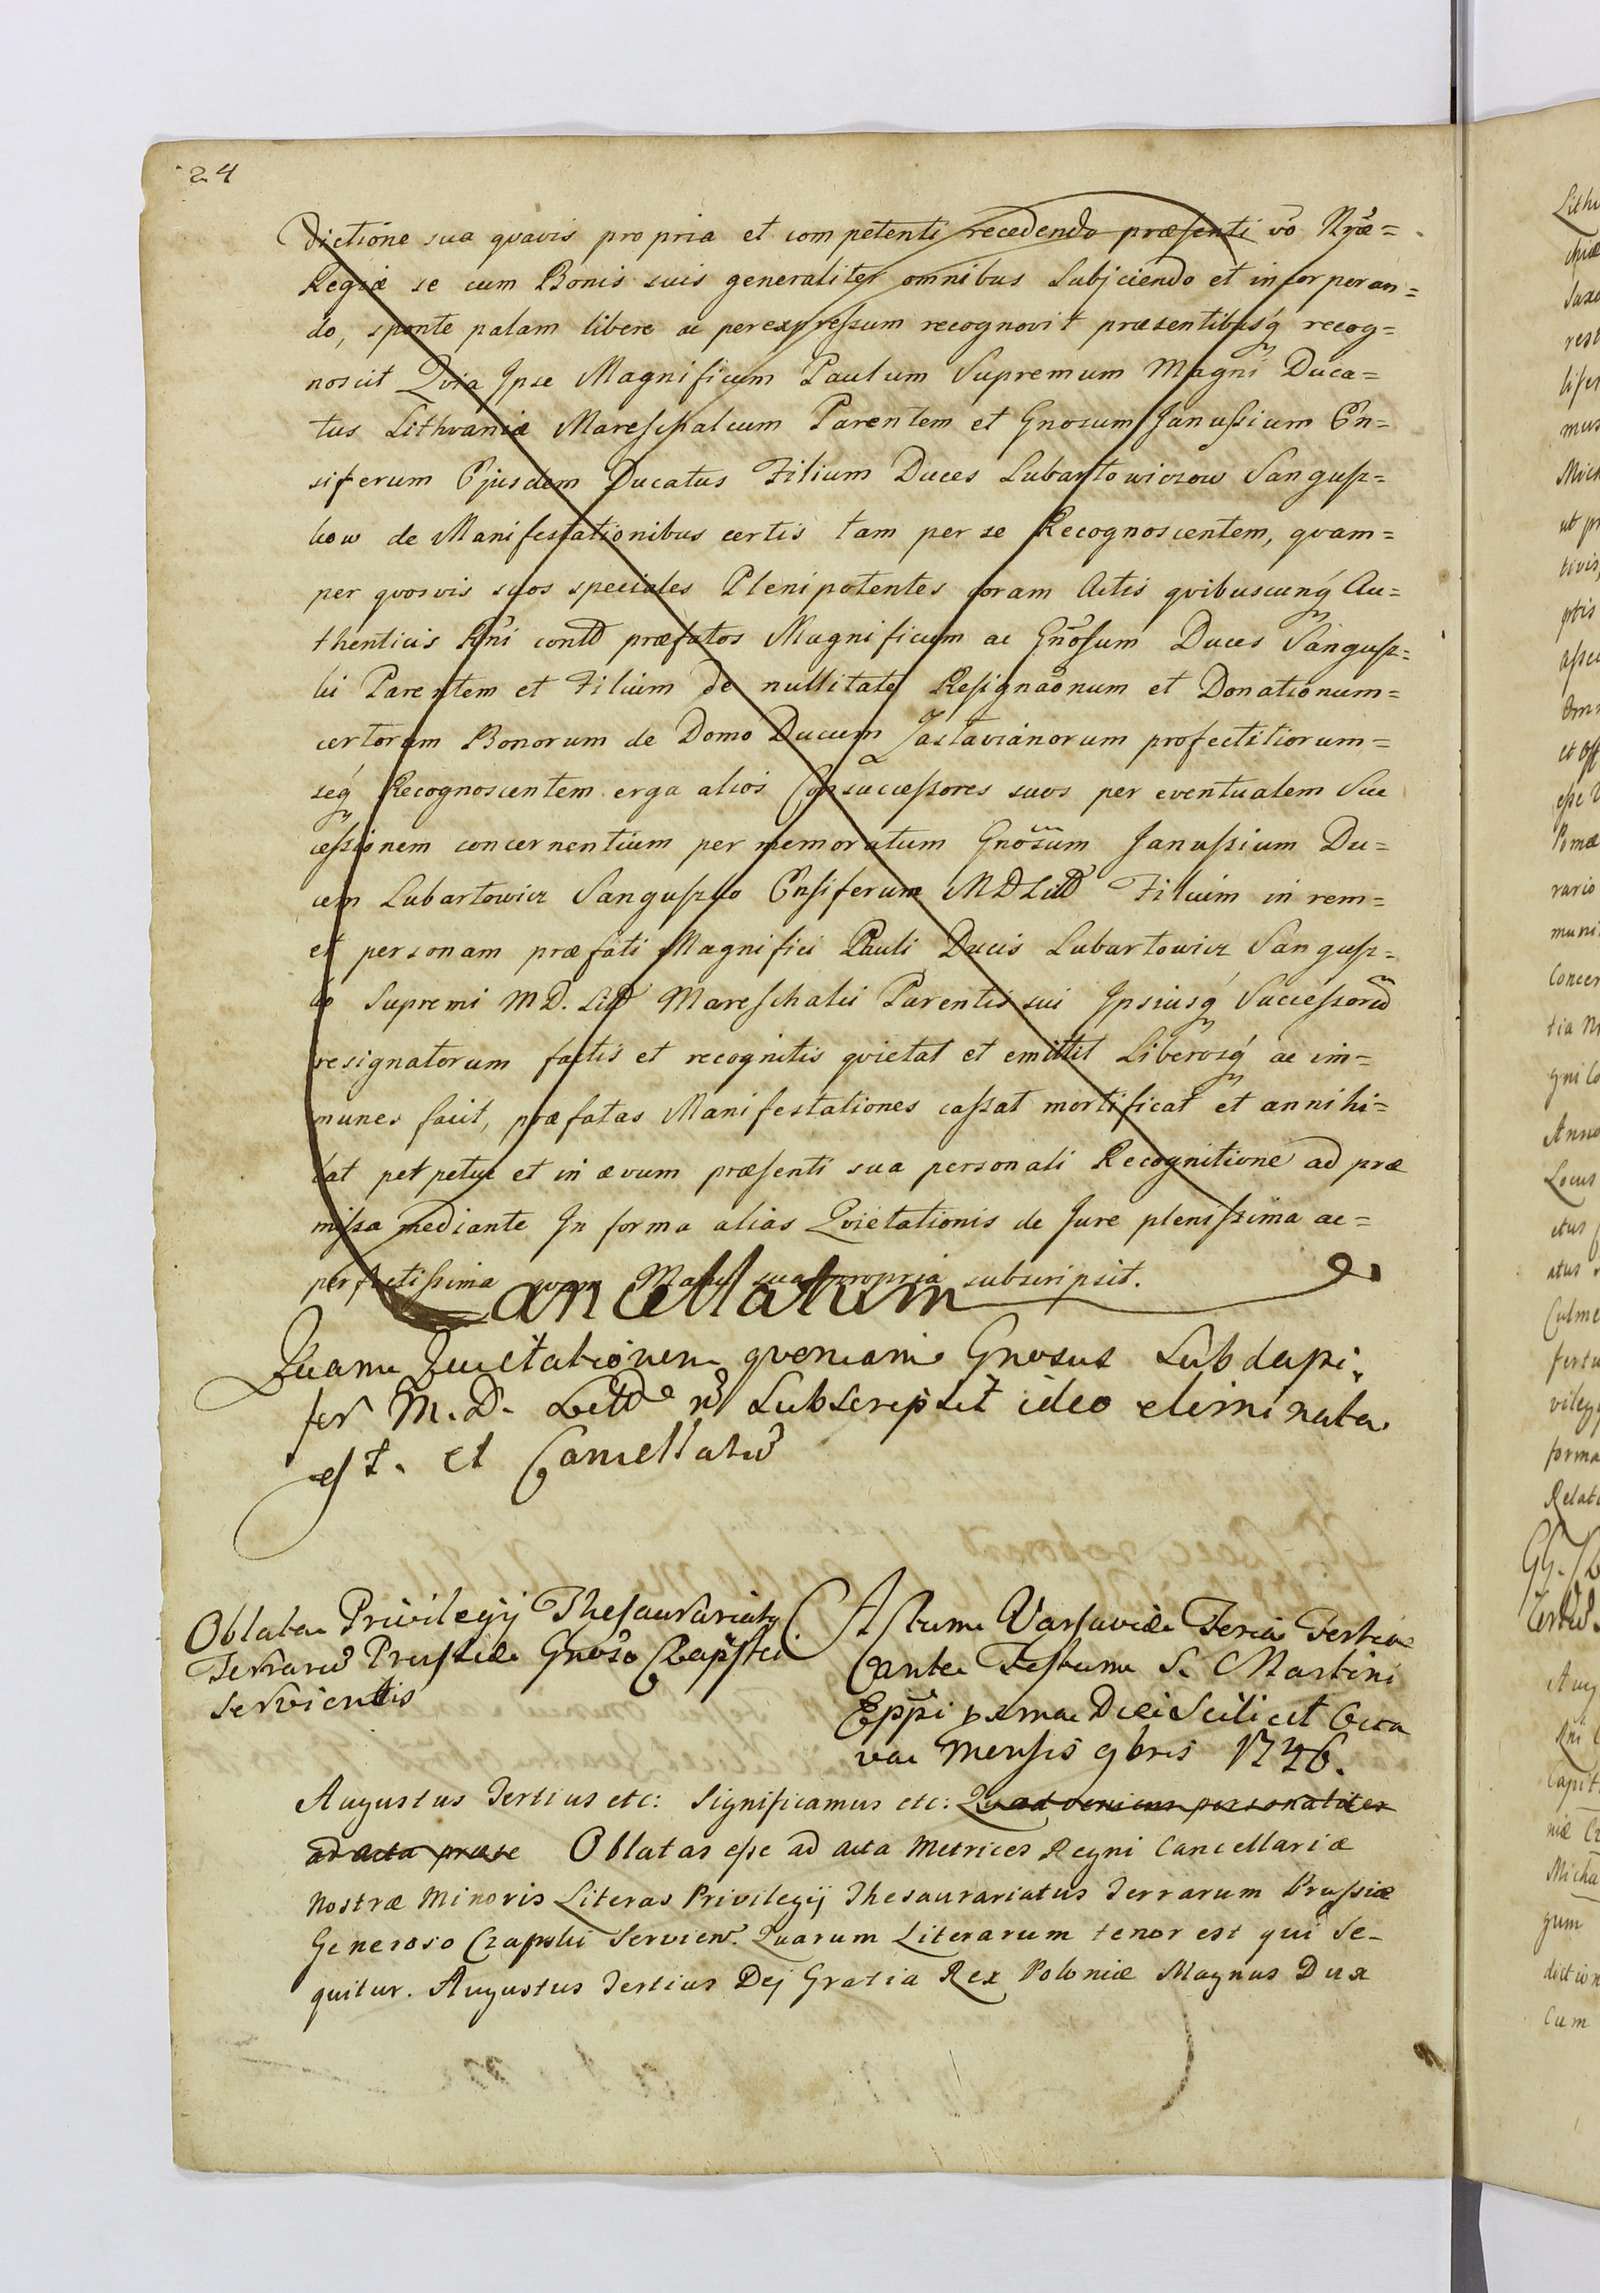 24
dictione sua qvavis propria et competenti recedendo præsenti vo Nræ=
Regiæ se cum Bonis suis generaliter omnibus Subjiciendo et incorporan=
do, sponte palam libere ac per expressum recognovit præsentibusq́ recog=
noscit Qvia Ipse Magnificum Paulum Supremum Magni Duca=
tus Lithvaniæ Mareschalcum Parentem et Gnosum Janussium En=
siferum Ejusdem Ducatus Filium Duces Lubartowiczow Sangusz=
kow de Manifestationibus certis tam per se Recognoscentem, qvam=
per qvosvis suos speciales Plenipotentes coram Actis qvibuscunq́ Au=
thenticis Rñi cont præfatos Magnificum ac Gñosum Duces Sangusz=
ki Parentem et Filium de nullitate Resignaõnum et Donationum=
certorum Bonorum de Domo Ducum Zaslavianorum profectitiorum=
seq́ Recognoscentem erga alios Consuccessores suos per eventualem Suc
cessionem concernentium per memoratum Gnõsum Janussium Du=
cem Lubartowicz Sanguszko Ensiferum MDLitt Filium in rem=
et personam præfati Magnifici Pauli Ducis Lubartowicz Sangusz=
ko Supremi M.D. Litt Mareschalci Parentis sui Ipsiusq́ Successorũ
resignatorum factis et recognitis qvietat et emittit Liberosq́ ac im=
munes facit, præfatas Manifestationes cassat mortificat et annihi=
lat perpetue et in ævum præsenti sua personali Recognitione ad præ
missa mediante In forma alias Qvietationis de Jure plenissima ac=
perfectissima qvam Manu sua propria subscripsit.
Cancellatum
Quam Quietationem qvoniam Gnosus Subdapi-
fer M.D. Litt ñ Subscripsit ideo eliminata
est. et Cancellatũ
Oblata Privilegij Thesaurariatq
Terrarũ Prussiæ Gnõso Czapski
servientis
Actum Varsaviæ Feria Tertia
ante Festum S. Martini
Eppi prma Diei Scilicet Octa
va Mensis 9bris 1746.
Augustus Tertius etc: Significamus etc: Quad veniens personaliter
ad acta præse Oblatas esse ad acta Metrices Regni Cancellariæ
Nostræ Minoris Literas Privilegij Thesaurariatus Terrarum Prussiæ
Generoso Czapski Servien. Quarum Literarum tenor est qui Se-
quitur. Augustus Tertius Dej Gratia Rex Poloniæ Magnus Dux